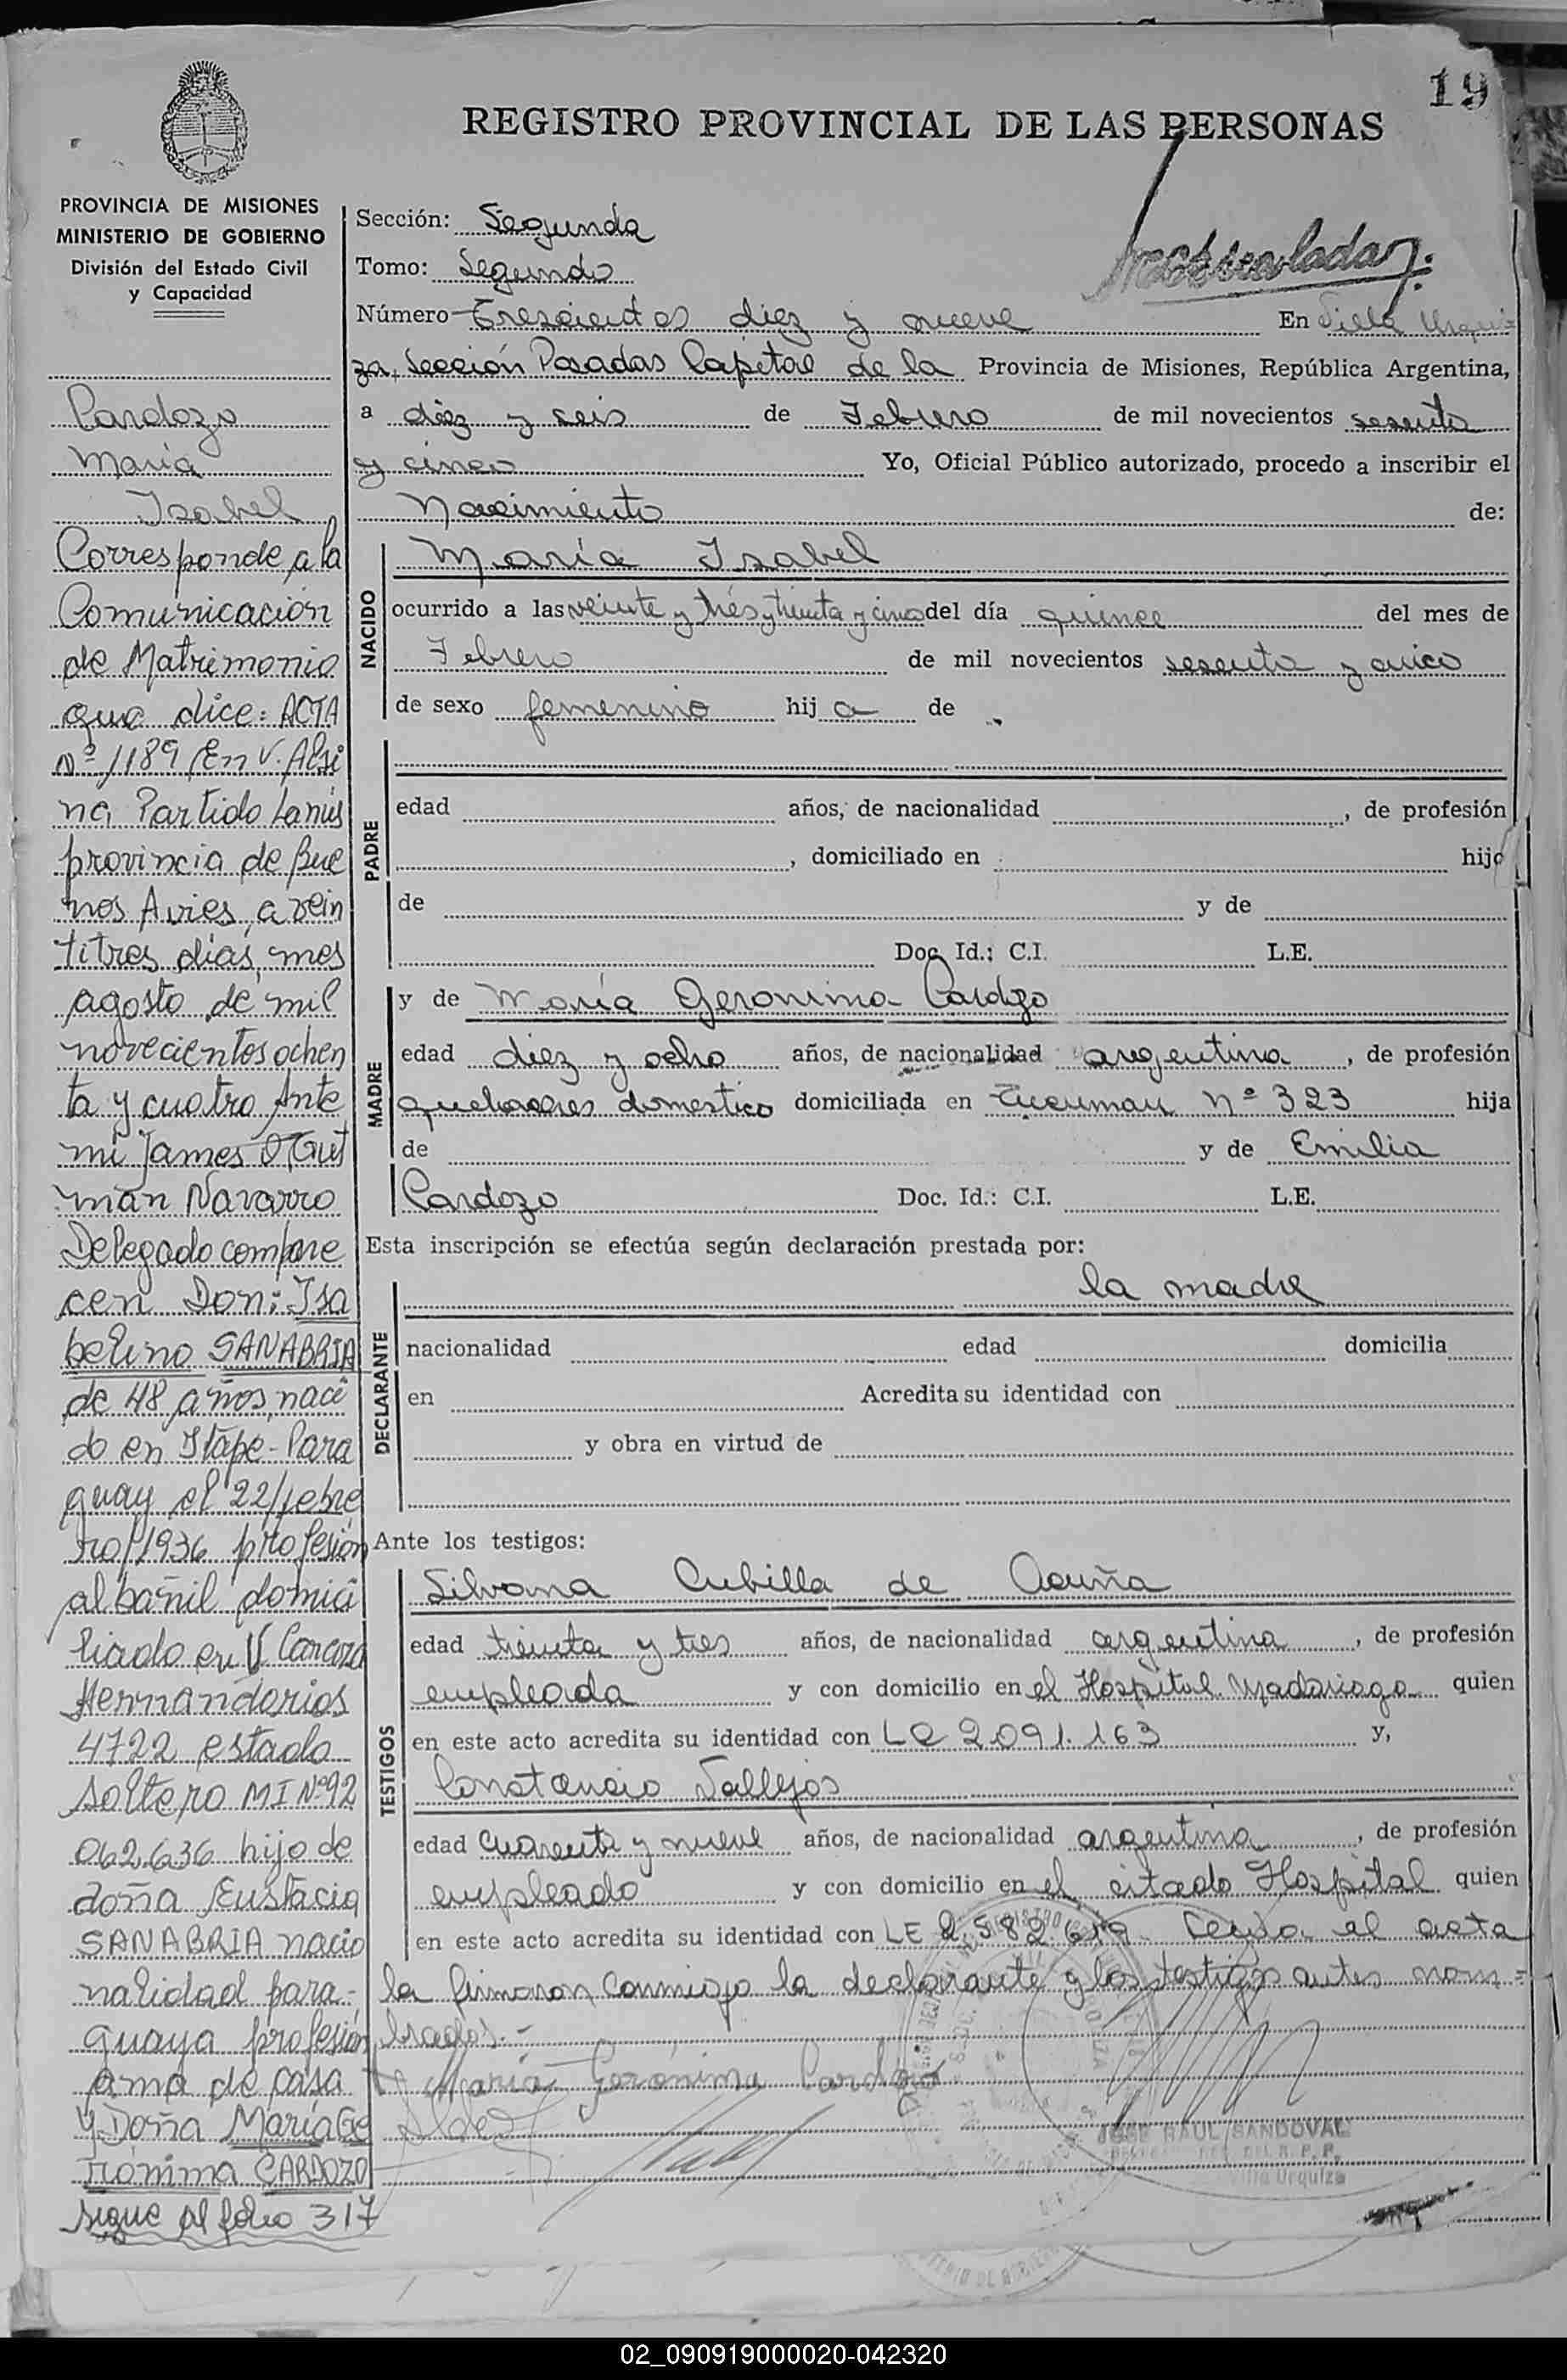 19
REGISTRO PROVINCIAL DE LAS PERSONAS
PROVINCIA DE MISIONES
MINISTERIO DE GOBIERNO
División del Estado Civil
y Capacidad
Cardozo
María
Isabel
Corresponde a la
Comunicación
de Matrimonio
que dice: ACTA
Nº 1189 En V. Alsi
na, Partido Lanús
provincia de Bue
nos Aires, a vein
titres días, mes
agosto de mil
novecientos ochen
ta y cuatro Ante
mi James O, Gut
man Navarro
Delegado compare
cen Don: Isa
belino SANABRIA
de 48 años, naci
do en Itape-Para
guay el 22/febre
ro/1936 profesión
albañil domici
liado en V Caraza
Hernandarios
4722 estado
soltero MI Nº 92
062.636 hijo de
doña Eustacia
SANABRIA nacio
nalidad para-
guaya profesión
ama de casa
y Doña María Ge
rónima CARDOZO
sigue al folio 317
Sección: Segunda
Tomo: Segundo
Número Trescientos diez y nueve En Villa Urqui
za, Sección Posadas Capital de la Provincia de Misiones, República Argentina,
a diez y seis de Febrero de mil novecientos sesenta
y cinco Yo, Oficial Público autorizado, procedo a inscribir el
Nacimiento de:
NACIDO
María Isabel
ocurrido a las veinte y trés y treinta y cinco del día quince del mes de
Febrero de mil novecientos sesenta y cinco
de sexo femenino hij a de
PADRE
edad años, de nacionalidad , de profesión
, domiciliado en hijo
de y de
Doc. Id.: C.I. L.E.
MADRE
y de María Geronima Cardozo
edad diez y ocho años, de nacionalidad argentina , de profesión
quehaceres domestico domiciliada en Tucuman nº 323 hija
de y de Emilia
Cardozo Doc. Id.: C.I. L.E.
Esta inscripción se efectúa según declaración prestada por:
DECLARANTE
la madre
nacionalidad edad domicilia
en Acredita su identidad con
y obra en virtud de
Ante los testigos:
TESTIGOS
Silvana Cubilla de Acuña
edad treinta y tres años, de nacionalidad argentina , de profesión
empleada y con domicilio en el Hospital Madariaga quien
en este acto acredita su identidad con LC 2.091.163 y,
Constancio Vallejos
edad cuarenta y nueve años, de nacionalidad argentina , de profesión
empleado y con domicilio en el citado Hospital quien
en este acto acredita su identidad con LE 2.582.619 Leida el acta
la firmaron conmigo la declarante y los testigos antes nom=
brados.-
María Gerónima Cardozo
JOSE RAUL SANDOVAL
Villa Urquiza
02_090919000020-042320